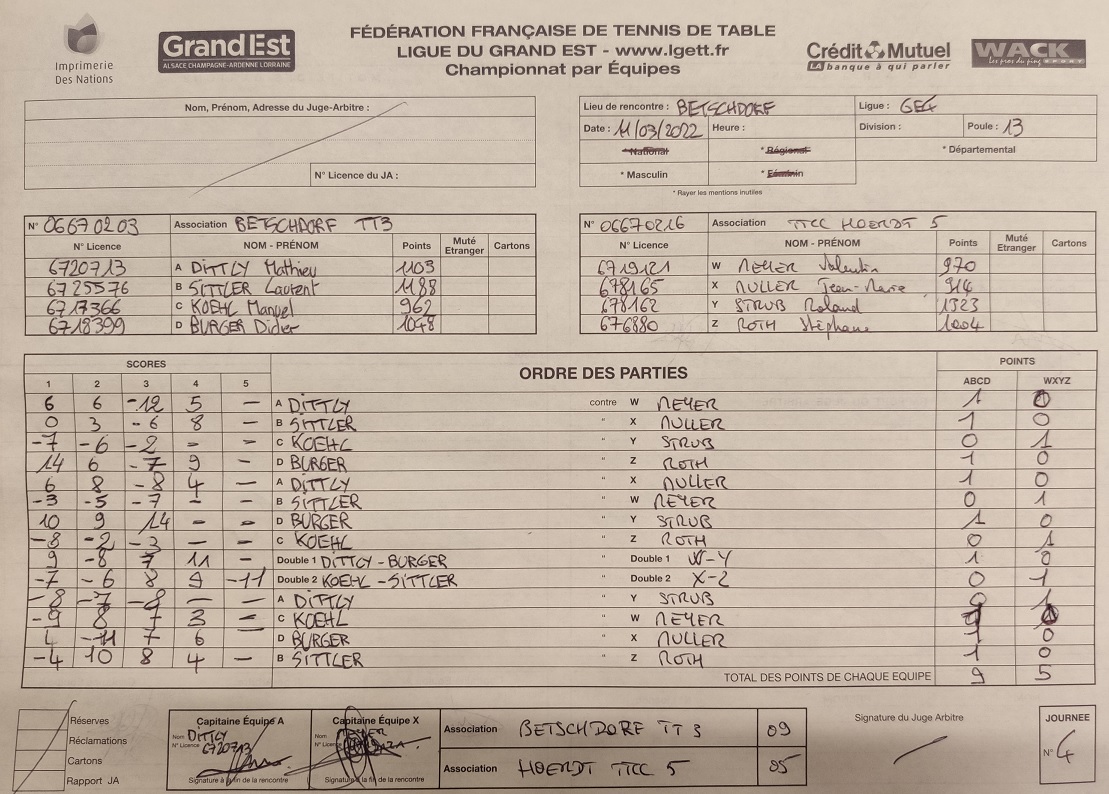 Imprimerie
Des Nations
Grand Est
ALSACE CHAMPAGNE-ARDENNE LORRAINE
FÉDÉRATION FRANÇAISE DE TENNIS DE TABLE
LIGUE DU GRAND EST - www.lgett.fr
Championnat par Équipes
Crédit Mutuel
LA banque à qui parler
WACK
Les pros du ping SPORT
Nom, Prénom, Adresse du Juge-Arbitre :
N° Licence du JA :
Lieu de rencontre : BETSCHDORF Ligue : GE4
Date : 11/03/2022 Heure : Division : Poule : 13
* National * Régional * Départemental
* Masculin * Féminin
* Rayer les mentions inutiles
N° 06670203 Association BETSCHDORF TT3
N° Licence NOM - PRÉNOM Points Muté Etranger Cartons
6720713 A DITTLY Mathieu 1103
6725576 B SITTLER Laurent 1188
6717366 C KOEHL Manuel 962
6718399 D BURGER Didier 1048
N° 06670216 Association TTCC HOERDT 5
N° Licence NOM - PRÉNOM Points Muté Etranger Cartons
6719121 W MEYER Valentin 970
678165 X MULLER Jean-Marie 914
678162 Y STRUB Roland 1323
676880 Z ROTH Stéphane 1004
SCORES ORDRE DES PARTIES POINTS
1 2 3 4 5 ABCD WXYZ
6 6 -12 5 - A DITTLY contre W MEYER 1 0
0 3 -6 8 - B SITTLER " X MULLER 1 0
-7 -6 -2 - - C KOEHL " Y STRUB 0 1
14 6 -7 9 - D BURGER " Z ROTH 1 0
6 8 -8 4 - A DITTLY " X MULLER 1 0
-3 -5 -7 - - B SITTLER " W MEYER 0 1
10 9 14 - - D BURGER " Y STRUB 1 0
-8 -2 -3 - - C KOEHL " Z ROTH 0 1
9 -8 7 11 - Double 1 DITTLY-BURGER " Double 1 W-Y 1 0
-7 -6 8 9 -11 Double 2 KOEHL-SITTLER " Double 2 X-Z 0 1
-8 -7 -8 - - A DITTLY " Y STRUB 0 1
-9 8 7 3 - C KOEHL " W MEYER 1 0
4 -11 7 6 - D BURGER " X MULLER 1 0
-4 10 8 4 - B SITTLER " Z ROTH 1 0
TOTAL DES POINTS DE CHAQUE EQUIPE 9 5
Réserves
Réclamations
Cartons
Rapport JA
Capitaine Équipe A
Nom DITTLY
N° Licence 6720713
Signature à la fin de la rencontre
Capitaine Équipe X
Nom MEYER
N° Licence
Signature à la fin de la rencontre
Association BETSCHDORF TT 3 09
Association HOERDT TTCC 5 05
Signature du Juge Arbitre
JOURNEE
N° 4